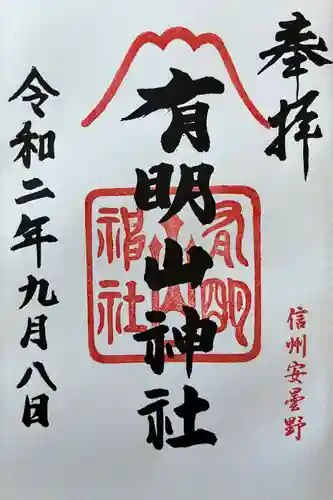 奉拝
信州安曇野
有明山神社
有明
神社
令和二年九月八日